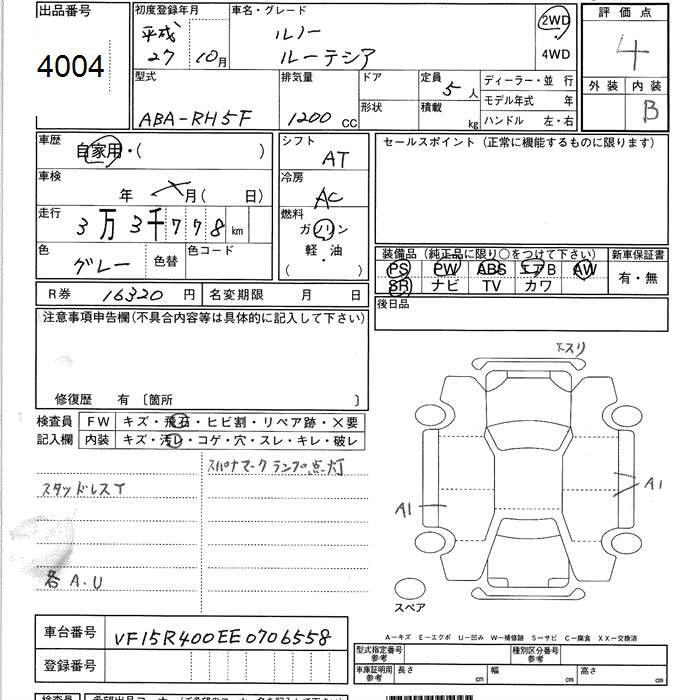 出品番号
4004
初度登録年月
平成
27 10月
車名・グレード
ルノー
ルーテシア
2WD
4WD
評価点
4
外装 内装
B
型式
ABA-RH5F
排気量
1200 CC
ドア
形状
定員
5人
積載
kg
ディーラー・並 行
モデル年式 年
ハンドル 左・右
車歴
自家用・( )
シフト
AT
セールスポイント (正常に機能するものに限ります)
車検
年 月( 日)
冷房
AC
走行
3万3千778km
燃料
ガソリン
軽・油
( )
色
グレー
色替
色コード
装備品 (純正品に限り○をつけて下さい)
PS PW ABS エアB AW
SR ナビ TV カワ
新車保証書
有・無
R券 16320 円
名変期限 月 日
後日品
注意事項申告欄(不具合内容等は具体的に記入して下さい)
修復歴 有 〔箇所 〕
検査員
記入欄
FW キズ・飛石・ヒビ割・リペア跡・X要
内装 キズ・汚レ・コゲ・穴・スレ・キレ・破レ
スパナマークランプ点灯
スタッドレスT
各A.U
下スリ
A1
A1
スペア
車台番号 VF15R400EE0706558
登録番号
A―キズ E―エクボ U―凹み W―補修跡 S―サビ C―腐食 XX―交換済
型式指定番号
参考
種別区分番号
参考
車庫証明用
参考
長さ cm 幅 cm 高さ cm